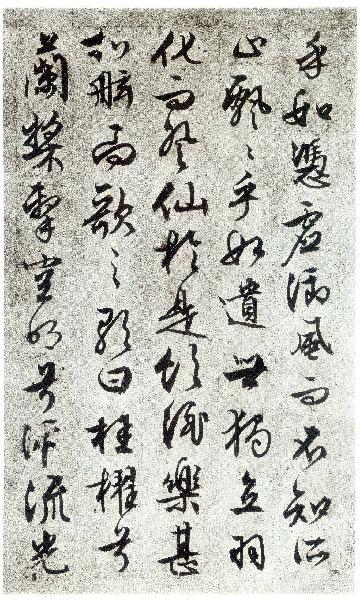 乎如憑虛御風而不知所
止飄〻乎如遺世獨立羽
化而登仙於是飲酒樂甚
扣舷而歌之歌曰桂櫂兮
蘭槳擊空明兮泝流光